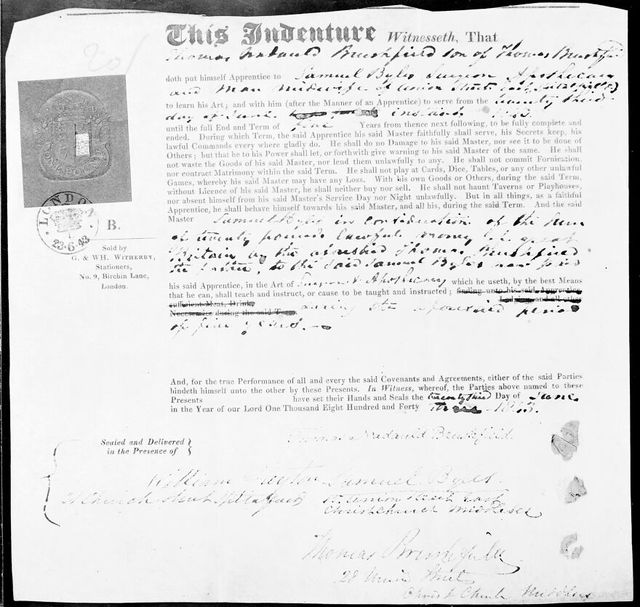 This Indenture Witnesseth, That
Thomas Brushfield son of Thomas Brushfield
doth put himself Apprentice to Samuel Byles Surgeon Apothecary
and Man midwife of Union Street
to learn his Art; and with him (after the Manner of an Apprentice) to serve from the twenty third
day of June instant
until the full End and Term of five Years from thence next following, to be fully complete and
ended. During which Term, the said Apprentice his Master faithfully shall serve, his Secrets keep, his
lawful Commands every where gladly do. He shall do no Damage to his said Master, nor see it to be done of
Others; but that he to his Power shall let, or forthwith give warning to his said Master of the same. He shall
not waste the Goods of his said Master, nor lend them unlawfully to any. He shall not commit Fornication,
nor contract Matrimony within the said Term. He shall not play at Cards, Dice, Tables, or any other unlawful
Games, whereby his said Master may have any Loss. With his own Goods or Others, during the said Term,
without Licence of his said Master, he shall neither buy nor sell. He shall not haunt Taverns or Playhouses,
nor absent himself from his said Master's Service Day nor Night unlawfully. But in all things, as a faithful
Apprentice, he shall behave himself towards his said Master, and all his, during the said Term. And the said
Master Samuel Byles in Consideration of the Sum
of twenty pounds lawful money of great
Britain by the aforesaid Thomas Brushfield
the father, to the said Samuel Byles
his said Apprentice, in the Art of Surgeon & Apothecary which he useth, by the best Means
that he can, shall teach and instruct, or cause to be taught and instructed; finding unto his said Apprentice
sufficient Meat, Drink,
Necessaries during the said Term during the aforesaid period
of five years.
And, for the true Performance of all and every the said Covenants and Agreements, either of the said Parties
bindeth himself unto the other by these Presents. In Witness, whereof, the Parties above named to these
Presents have set their Hands and Seals the twenty third Day of June
in the Year of our Lord One Thousand Eight Hundred and Forty three 1843.
LONDON
23.6.43
B.
Sold by
G. & WH. WITHERBY,
Stationers,
No. 9, Birchin Lane,
London.
Sealed and Delivered
in the Presence of
Thomas Brushfield.
William Samuel Byles.
Church Street Union Street East
Christchurch Middlesex
Thomas Brushfield
28 Union Street
Christ Church Middlesex